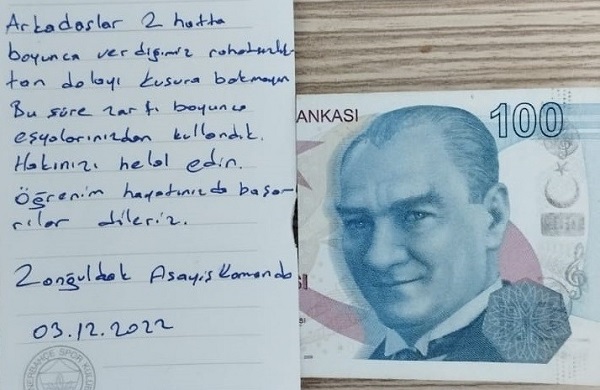 Arkadaşlar 2 hafta
boyunca verdiğimiz rahatsızlık
tan dolayı kusura bakmayın
Bu süre zarfı boyunca
eşyalarınızdan kullandık.
Hakınızı helal edin.
Öğrenim hayatınızda başa-
rılar dileriz.
Zonguldak Asayiş Komando
03.12.2022
ANKASI
100